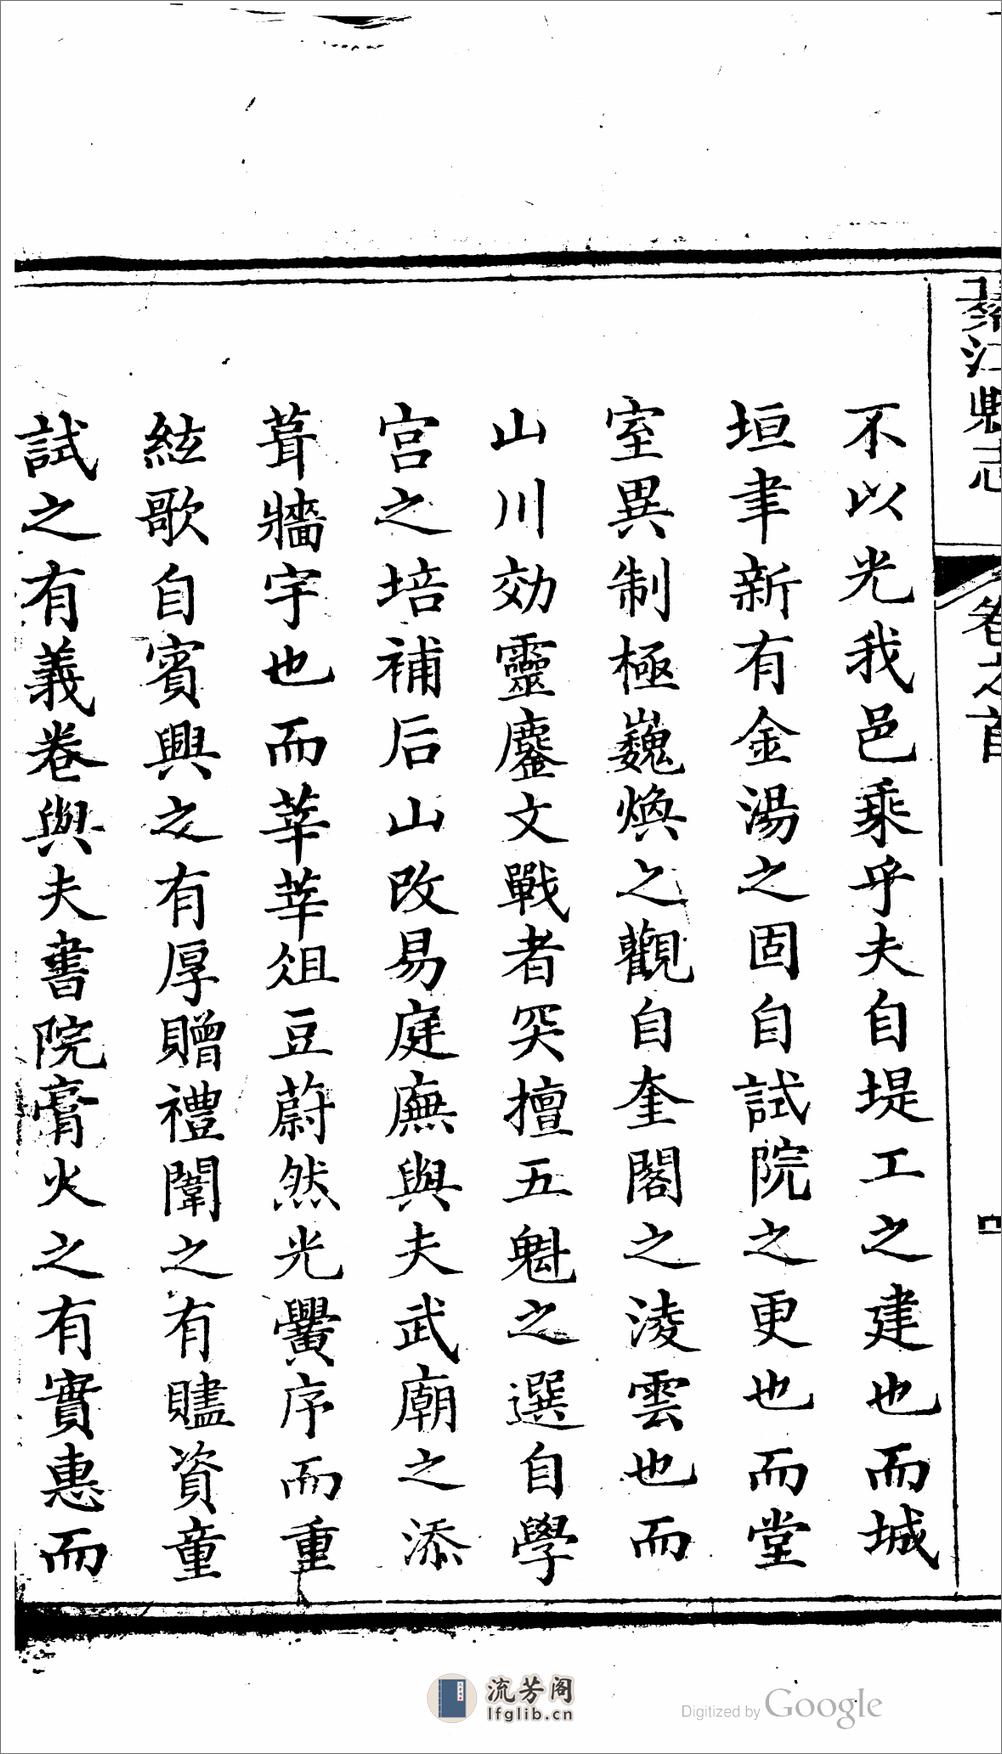 綦江縣志 卷之首
不以光我邑乘乎夫自堤工之建也而城
垣聿新有金湯之固自試院之更也而堂
室異制極巍煥之觀自奎閣之淩雲也而
山川効靈鏖文戰者突擅五魁之選自學
宮之培補后山改易庭廡與夫武廟之添
葺牆宇也而莘莘俎豆蔚然光黌序而重
絃歌自賓興之有厚贈禮闈之有贐資童
試之有義卷與夫書院膏火之有實惠而
流芳阁
lfglib.cn
Digitized by Google